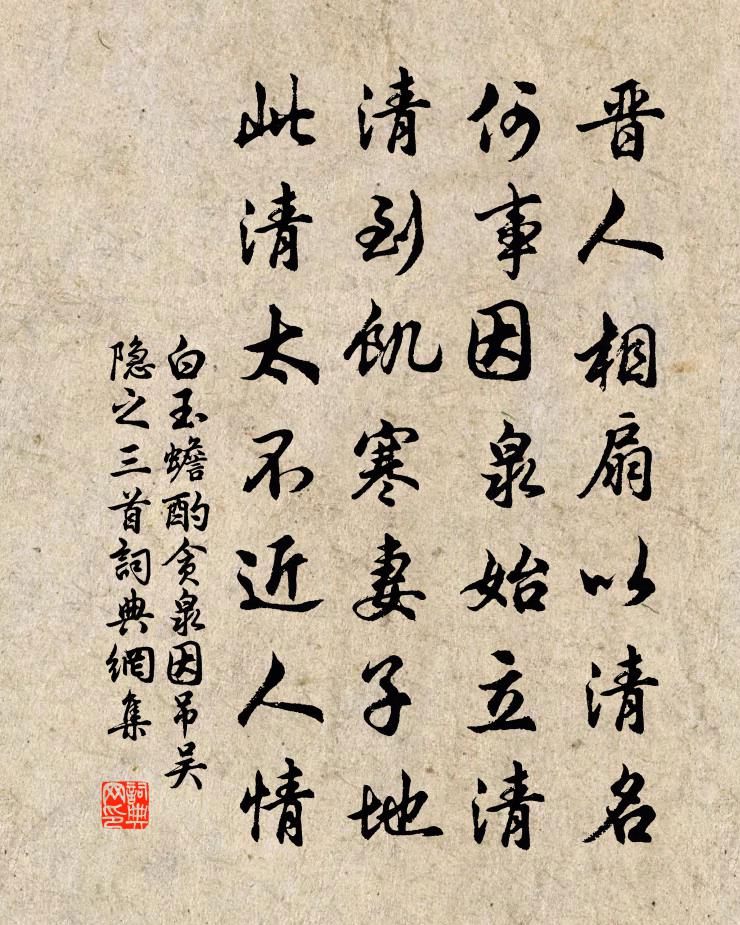 晋人相扇以清名
何事因泉始立清
清到飢寒妻子地
此清太不近人情
白玉蟾酌贪泉因吊吴
隐之三首詞典網集
詞典
网印